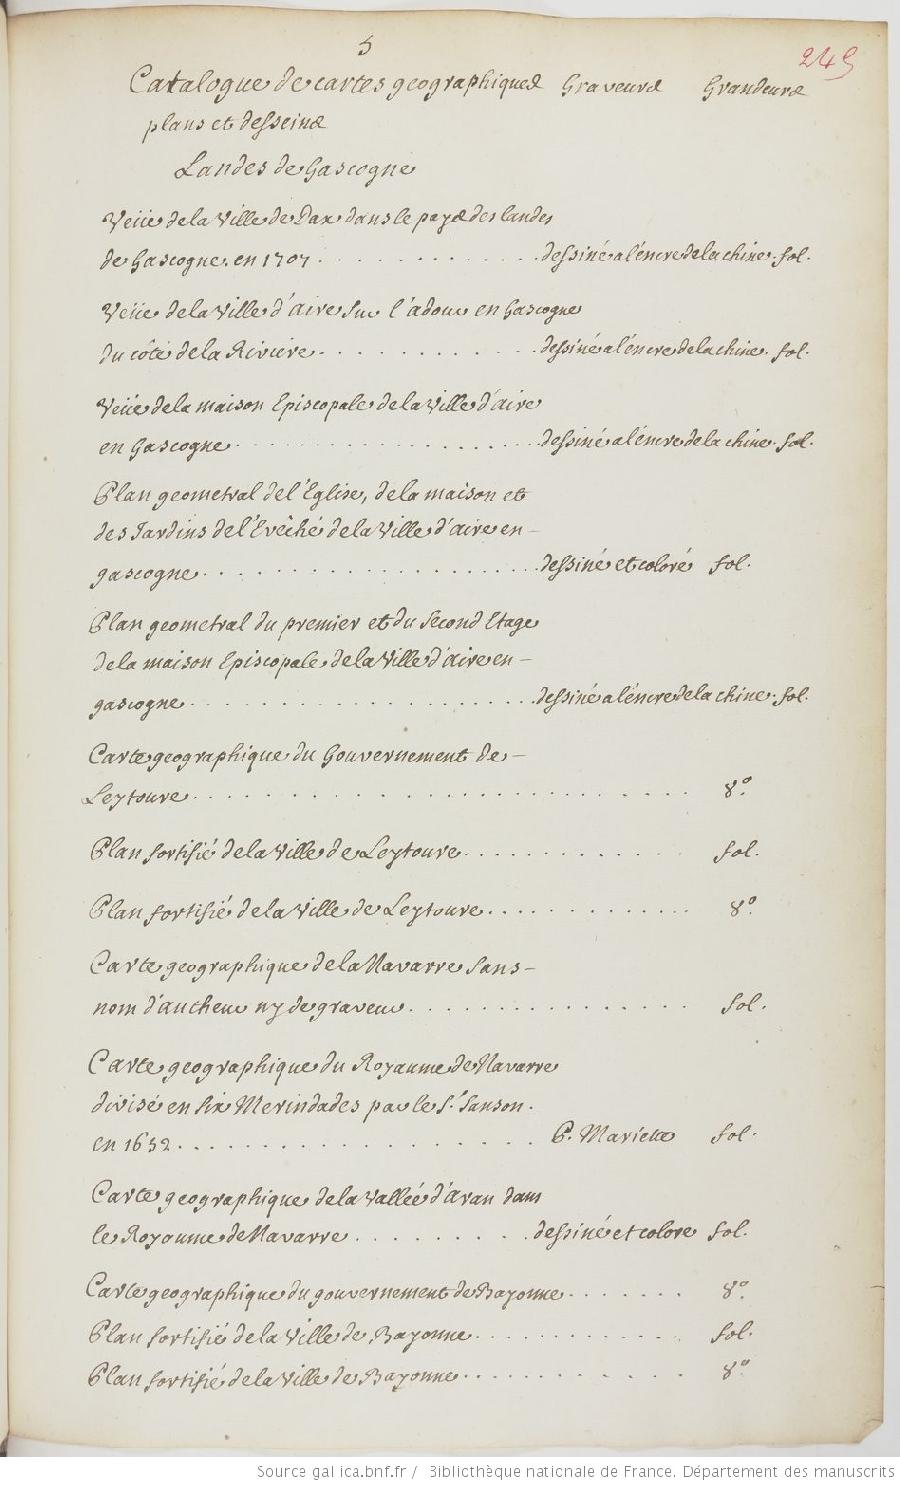 5
249
Catalogue de cartes geographiques Graveurs Grandeurs
plans et desseins
Landes de Gascogne
Veüe de la Ville de Dax dans le pays des landes
de Gascogne. en 1707 . . . . . . . . . . . . dessiné a l'encre de la chine. fol.
Veüe de la Ville d'aire sur l'adour en Gascogne
du côté de la Riviere . . . . . . . . . . . . dessiné a l'encre de la chine. fol.
Veüe de la maison Episcopale de la Ville d'aire
en Gascogne . . . . . . . . . . . . dessiné a l'encre de la chine. fol.
Plan geometral de l'Eglise, de la maison et
des Jardins de l'Evêché de la Ville d'aire en –
gascogne . . . . . . . . . . . . dessiné et coloré fol.
Plan geometral du premier et du second Etage
de la maison Episcopale de la Ville d'aire en –
gascogne . . . . . . . . . . . . dessiné a l'encre de la chine. fol.
Carte geographique du Gouvernement de –
Leytoure . . . . . . . . . . . . 8.º
Plan fortifié de la Ville de Leytoure . . . . . . . . fol.
Plan fortifié de la Ville de Leytoure . . . . . . . . 8.º
Carte geographique de la Navarre sans –
nom d'autheur ny de graveur . . . . . . . . . . fol.
Carte geographique du Royaume de Navarre
divisé en six Merindades par le S.r Sanson.
en 1652 . . . . . . . . . . . . P. Mariette fol.
Carte geographique de la Vallée d'aran dans
le Royaume de Navarre . . . . . . . . dessiné et coloré fol.
Carte geographique du gouvernement de Bayonne . . . . . . . 8.º
Plan fortifié de la Ville de Bayonne . . . . . . . . fol.
Plan fortifié de la Ville de Bayonne . . . . . . . . 8.º
Source gallica.bnf.fr / Bibliothèque nationale de France. Département des manuscrits